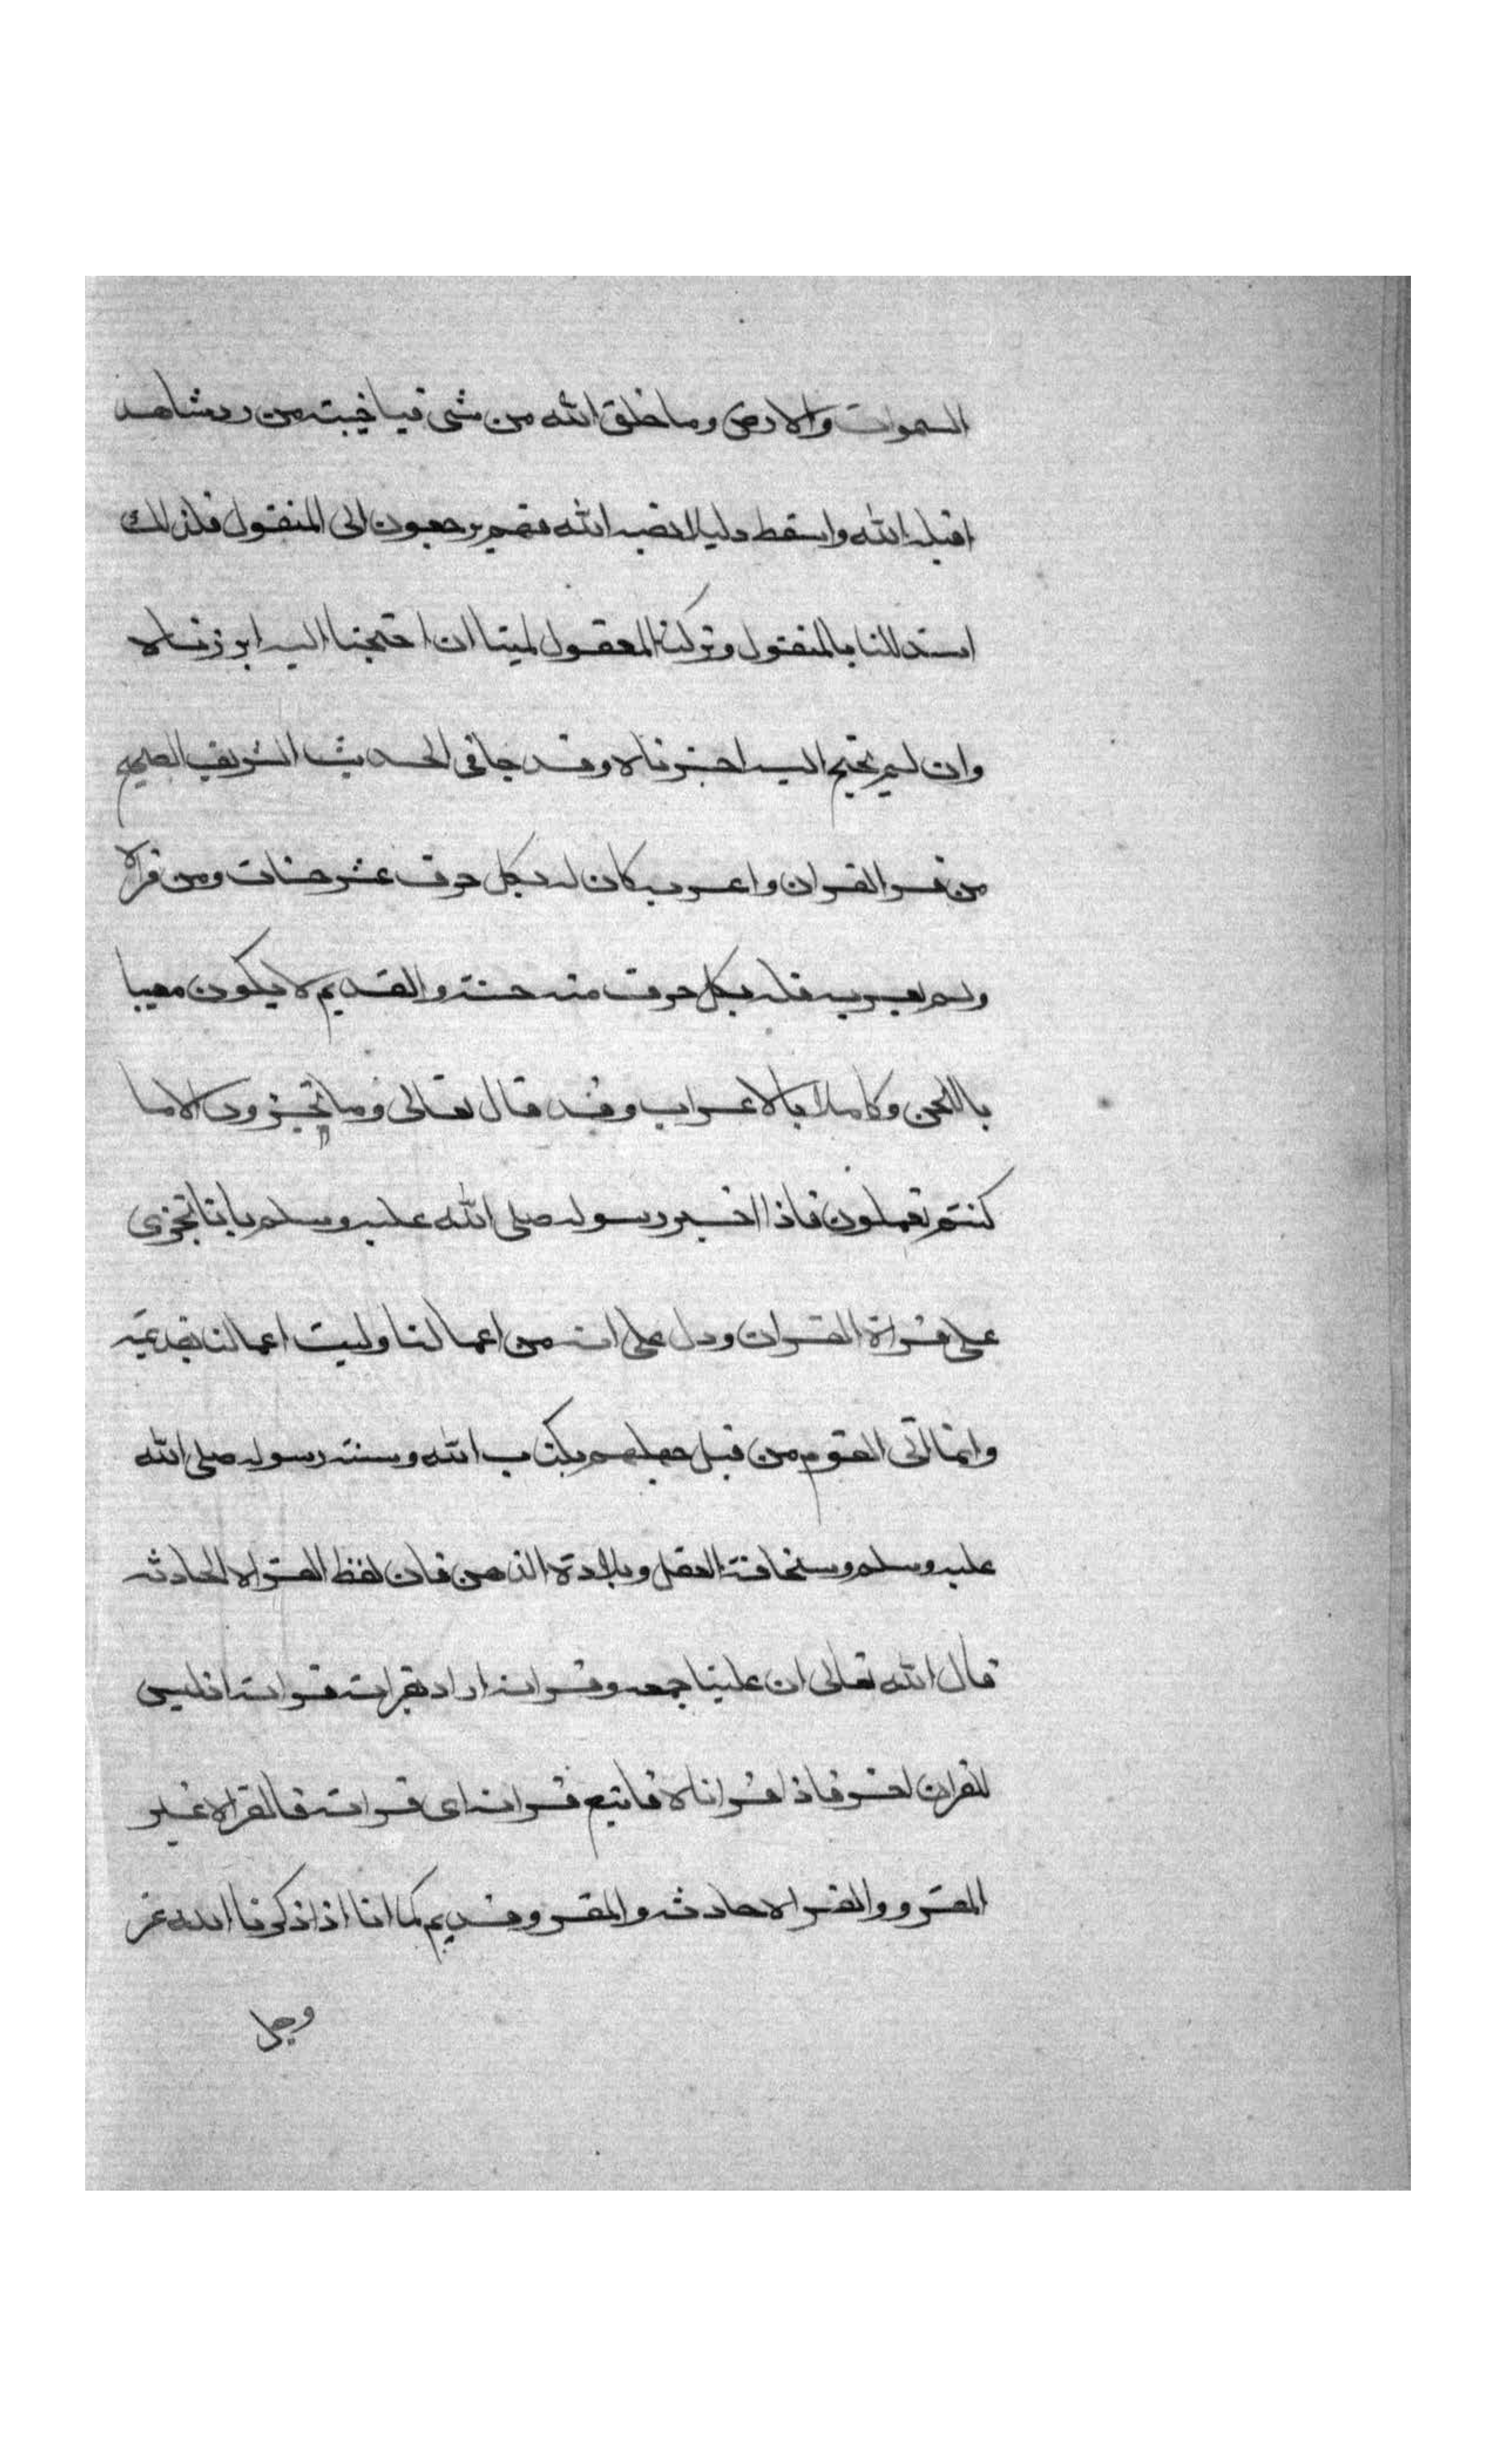 السموات والارض وما خلق الله من شى فياخيبة من رد شاهد
اقبله الله واسقط دليلا نصبه الله فهم يرجعون الى المنقول فلذلك
استدللنا بالمنقول وتركنا المعقول لمتا ان احتجنا اليه ابرزناه
وان لم نحتج اليه اخبزناه وقد جا فى الحديث الشريف الصحيح
من قر القران واعربه كان له بكل حرف عشر حسنات ومن قراه
ولم يعربه فله بكل حرف منه حسنة والقديم لا يكون معيبا
باللحن وكاملا بالاعراب وقد قال تعالى وما تجزون الا ما
كنتم تعملون فاذا اخبر رسوله صلى الله عليه وسلم باننا نجزى
على قراة القران ودل على انه من اعمالنا وليست اعمالنا بقديمة
وانما اتى القوم من قبل جهلهم بكتاب الله وسنة رسوله صلى الله
عليه وسلم وسخافة العقل وبلادة الذهن فان لفظ القراه الحادثه
قال الله تعالى ان علينا جمعه وقرانه اراد بقرانه قراته اذ ليس
للقران لقر فاذا قراناه فاتبع قرانه اى قراته فالقراه غير
المقرو والقراه حادثه والمقرو قديم كما انا اذا ذكرنا الله عز
وجل